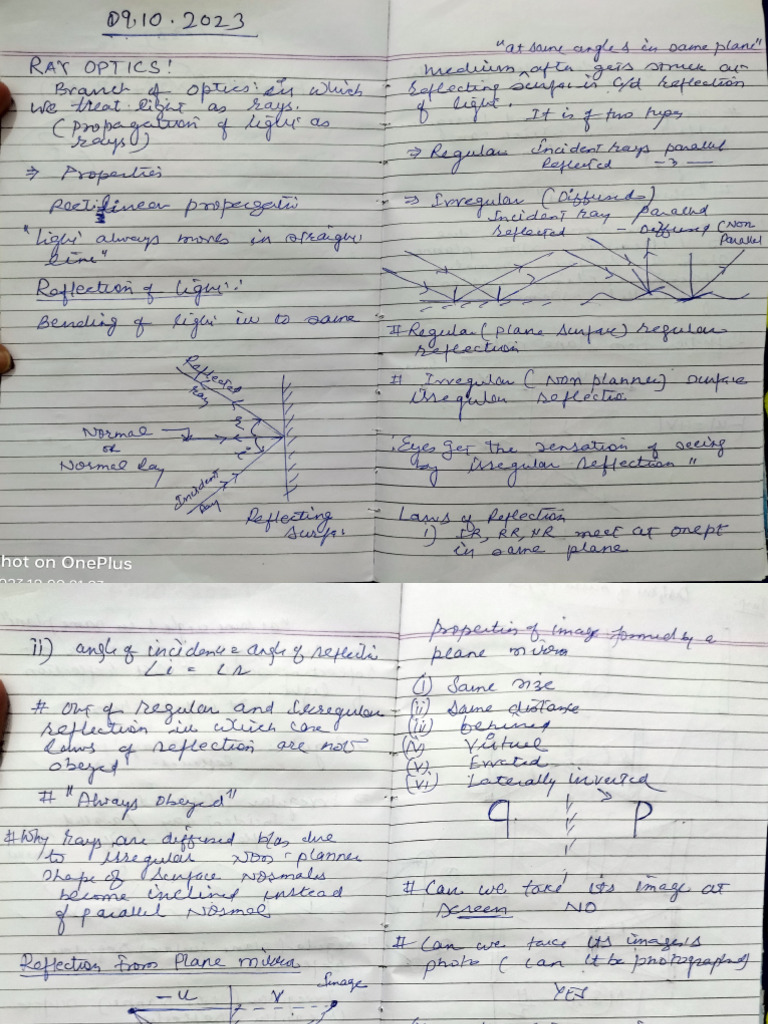 09.10.2023
RAY OPTICS!
Branch of optics in which
we treat light as rays.
(Propagation of light as
rays)
⇒ Properties
Rectilinear propergati
"light always moves in straight
line"
Reflection of light:
Bending of light in to same
Reflected
ray
r
i
Normal
or
Normal Ray
Incident
ray
Reflecting
Surfa
"at same angles in same plane"
medium after gets struck at
reflecting surface is c/d reflection
of light.
It is of two types
⇒ Regular Incident rays parallel
Reflected —〃—
⇒ Irregular (Diffused)
Incident ray parallel
reflected - Diffused (Non
Parallel
# Regular (plane surface) regular
reflection
# Irregular (Non planner) surface
irregular reflectio
"Eyes get the sensation of seeing
by irregular reflection"
Laws of Reflection
i) IR, RR, NR meet at one pt
in same plane
Shot on OnePlus
ii) angle of incidence = angle of reflecti
∠i = ∠r
# Out of regular and Irregular
reflection in which case
laws of reflection are not
obeyed
# "Always obeyed"
# Why rays are diffused b/as due
to irregular non-planner
shape of surface Normals
become inclined instead
of parallel Normal
Reflection From Plane mirror
-u
v
Image
Properties of image formed by a
plane mirror
(i) Same size
(ii) Same distance
(iii) behined
(iv) Virtuel
(v) Errected
(vi) Laterally inverted
q P
# Can we take its image at
screen NO
# Can we take its image's
photo (can it be photographed)
YES